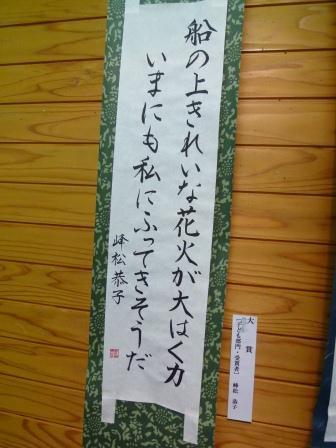 船の上きれいな花火が大はく力
いまにも私にふってきそうだ
峰松恭子
大賞
峰松 恭子